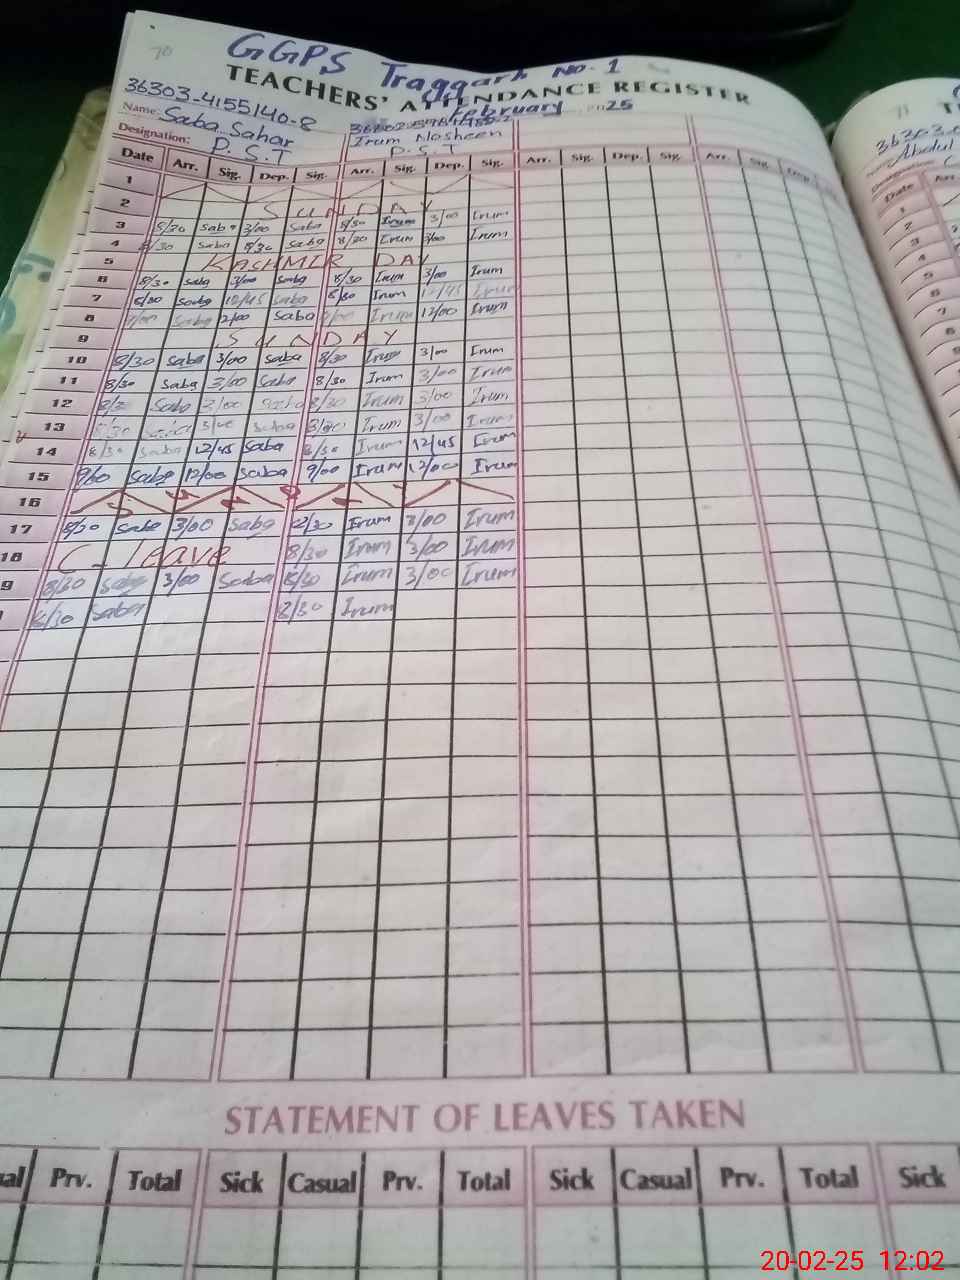 70
GGPS Traggarh No. 1
TEACHERS' ATTENDANCE REGISTER
36303-4155140-8
February 2025
Name: Saba Sahar
Irum Nosheen
Designation: P.S.T
P.S.T
Date Arr. Sig. Dep. Sig. Arr. Sig. Dep. Sig. Arr. Sig. Dep. Sig. Arr. Sig. Dep.
1
2 SUNDAY
3 8/30 Saba 3/00 Saba 8/30 Irum 3/00 Irum
4 8/30 Saba Saba 8/30 Irum 3/00 Irum
5 KASHMIR DAY
6 8/30 Saba 3/00 Saba 8/30 Irum 3/00 Irum
7 8/30 Saba 12/45 Saba 8/30 Irum 12/45 Irum
8 9/00 Saba 12/00 Saba 9/00 Irum 12/00 Irum
9 SUNDAY
10 8/30 Saba 3/00 Saba 8/30 Irum 3/00 Irum
11 8/30 Saba 3/00 Saba 8/30 Irum 3/00 Irum
12 8/30 Saba 3/00 Saba 8/30 Irum 3/00 Irum
13 8/30 Saba 3/00 Saba 8/30 Irum 3/00 Irum
14 8/30 Saba 12/45 Saba 8/30 Irum 12/45 Irum
15 9/00 Saba 12/00 Saba 9/00 Irum 12/00 Irum
16
17 8/30 Saba 3/00 Saba 8/30 Irum 3/00 Irum
18 C-leave 8/30 Irum 3/00 Irum
9 8/30 Saba 3/00 Saba 8/30 Irum 3/00 Irum
8/30 Saba 8/30 Irum
STATEMENT OF LEAVES TAKEN
Prv. Total Sick Casual Prv. Total Sick Casual Prv. Total Sick
71
Abdul
Date
1
2
3
4
5
6
7
8
9
20-02-25 12:02